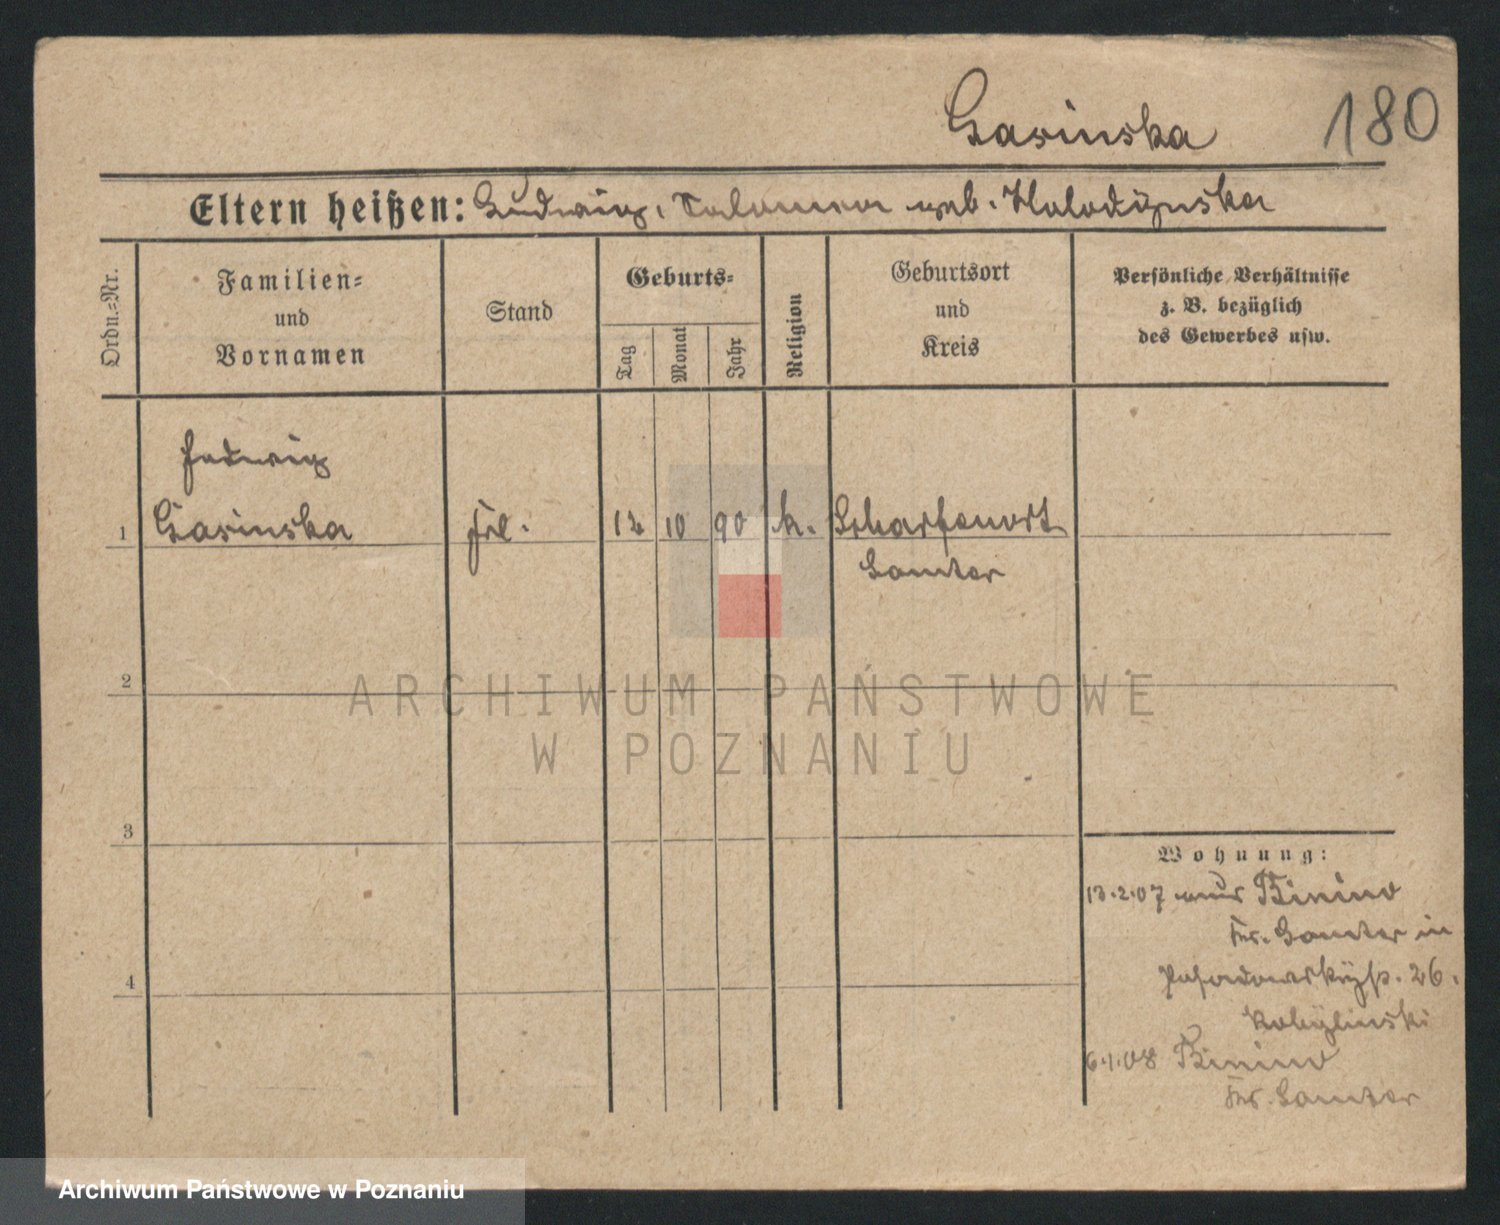 Gasinska 180
Eltern heißen: Ludwig, Salomea geb. Holodynska
Ordn.-Nr.
Familien-
und
Vornamen
Stand
Geburts-
Tag
Monat
Jahr
Religion
Geburtsort
und
Kreis
Persönliche Verhältnisse
z. B. bezüglich
des Gewerbes usw.
Hedwig
1 Gasinska Frl. 12 10 90 k. Scharfenort
Samter
2
3
4
Wohnung:
13.2.07 aus Binino
Kr. Samter in
26.
Kobylinski
6.1.08 Binino
Kr. Samter
ARCHIWUM PAŃSTWOWE
W POZNANIU
Archiwum Państwowe w Poznaniu